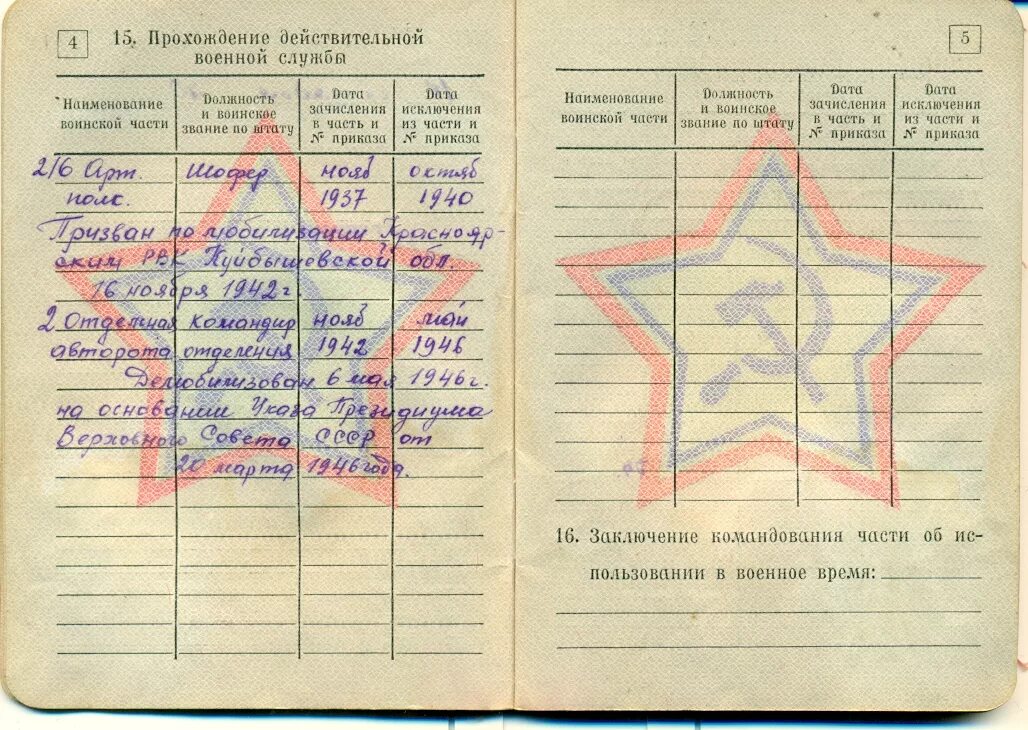 4
15. Прохождение действительной
военной службы
Наименование воинской части
Должность и воинское звание по штату
Дата зачисления в часть и № приказа
Дата исключения из части и № приказа
216 Арт. Шофер нояб октяб
полк. 1937 1940
Призван по мобилизации Краснояр-
ским РВК Куйбышевской обл.
16 ноября 1942 г.
2 Отдельная командир нояб май
авторота отделения 1942 1946
Демобилизован 6 мая 1946 г.
на основании Указа Президиума
Верховного Совета СССР от
20 марта 1946 года.
5
Наименование воинской части
Должность и воинское звание по штату
Дата зачисления в часть и № приказа
Дата исключения из части и № приказа
16. Заключение командования части об ис-
пользовании в военное время: